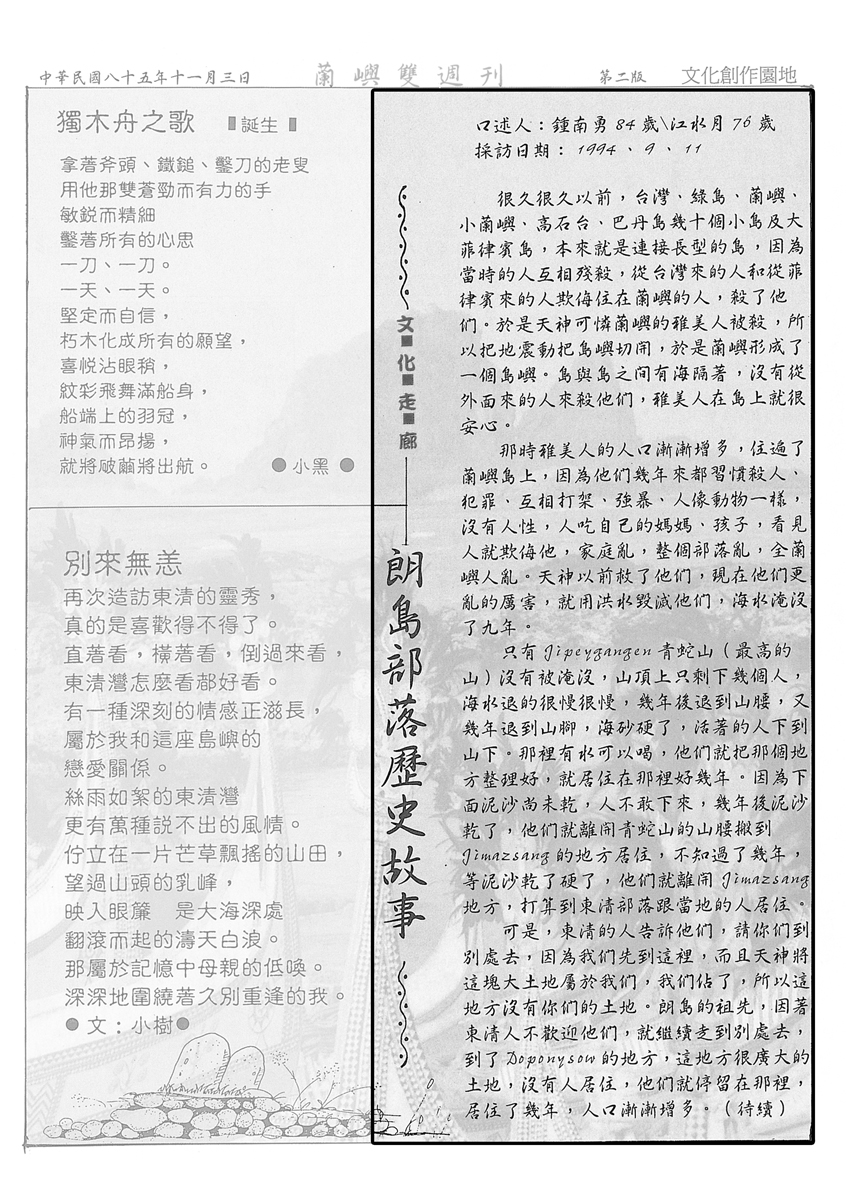 中華民國八十五年十一月三日
蘭嶼雙週刊
第二版
文化創作園地
獨木舟之歌 ▮誕生▮
拿著斧頭、鐵鎚、鑿刀的老叟
用他那雙蒼勁而有力的手
敏銳而精細
鑿著所有的心思
一刀、一刀。
一天、一天。
堅定而自信，
朽木化成所有的願望，
喜悅沾眼稍，
紋彩飛舞滿船身，
船端上的羽冠，
神氣而昂揚，
就將破繭將出航。 ●小黑●
別來無恙
再次造訪東清的靈秀，
真的是喜歡得不得了。
直著看，橫著看，倒過來看，
東清灣怎麼看都好看。
有一種深刻的情感正滋長，
屬於我和這座島嶼的
戀愛關係。
絲雨如絮的東清灣
更有萬種說不出的風情。
佇立在一片芒草飄搖的山田，
望過山頭的乳峰，
映入眼簾 是大海深處
翻滾而起的濤天白浪。
那屬於記憶中母親的低喚。
深深地圍繞著久別重逢的我。
●文：小樹●
文化走廊
朗島部落歷史故事
口述人：鍾南勇84歲\江水月76歲
採訪日期：1994、9、11
很久很久以前，台灣、綠島、蘭嶼、
小蘭嶼、高石台、巴丹島幾十個小島及大
菲律賓島，本來就是連接長型的島，因為
當時的人互相殘殺，從台灣來的人和從菲
律賓來的人欺侮住在蘭嶼的人，殺了他
們。於是天神可憐蘭嶼的雅美人被殺，所
以把地震動把島嶼切開，於是蘭嶼形成了
一個島嶼。島與島之間有海隔著，沒有從
外面來的人來殺他們，雅美人在島上就很
安心。
那時雅美人的人口漸漸增多，住遍了
蘭嶼島上，因為他們幾年來都習慣殺人、
犯罪、互相打架、強暴、人像動物一樣，
沒有人性，人吃自己的媽媽、孩子，看見
人就欺侮他，家庭亂，整個部落亂，全蘭
嶼人亂。天神以前救了他們，現在他們更
亂的厲害，就用洪水毀滅他們，海水淹沒
了九年。
只有Jipeygangen青蛇山（最高的
山）沒有被淹沒，山頂上只剩下幾個人，
海水退的很慢很慢，幾年後退到山腰，又
幾年退到山腳，海砂硬了，活著的人下到
山下。那裡有水可以喝，他們就把那個地
方整理好，就居住在那裡好幾年。因為下
面泥沙尚未乾，人不敢下來，幾年後泥沙
乾了，他們就離開青蛇山的山腰搬到
Jimazsang的地方居住，不知過了幾年，
等泥沙乾了硬了，他們就離開Jimazsang
地方，打算到東清部落跟當地的人居住。
可是，東清的人告訴他們，請你們到
別處去，因為我們先到這裡，而且天神將
這塊大土地屬於我們，我們佔了，所以這
地方沒有你們的土地。朗島的祖先，因著
東清人不歡迎他們，就繼續走到別處去，
到了Doponysow的地方，這地方很廣大的
土地，沒有人居住，他們就停留在那裡，
居住了幾年，人口漸漸增多。（待續）